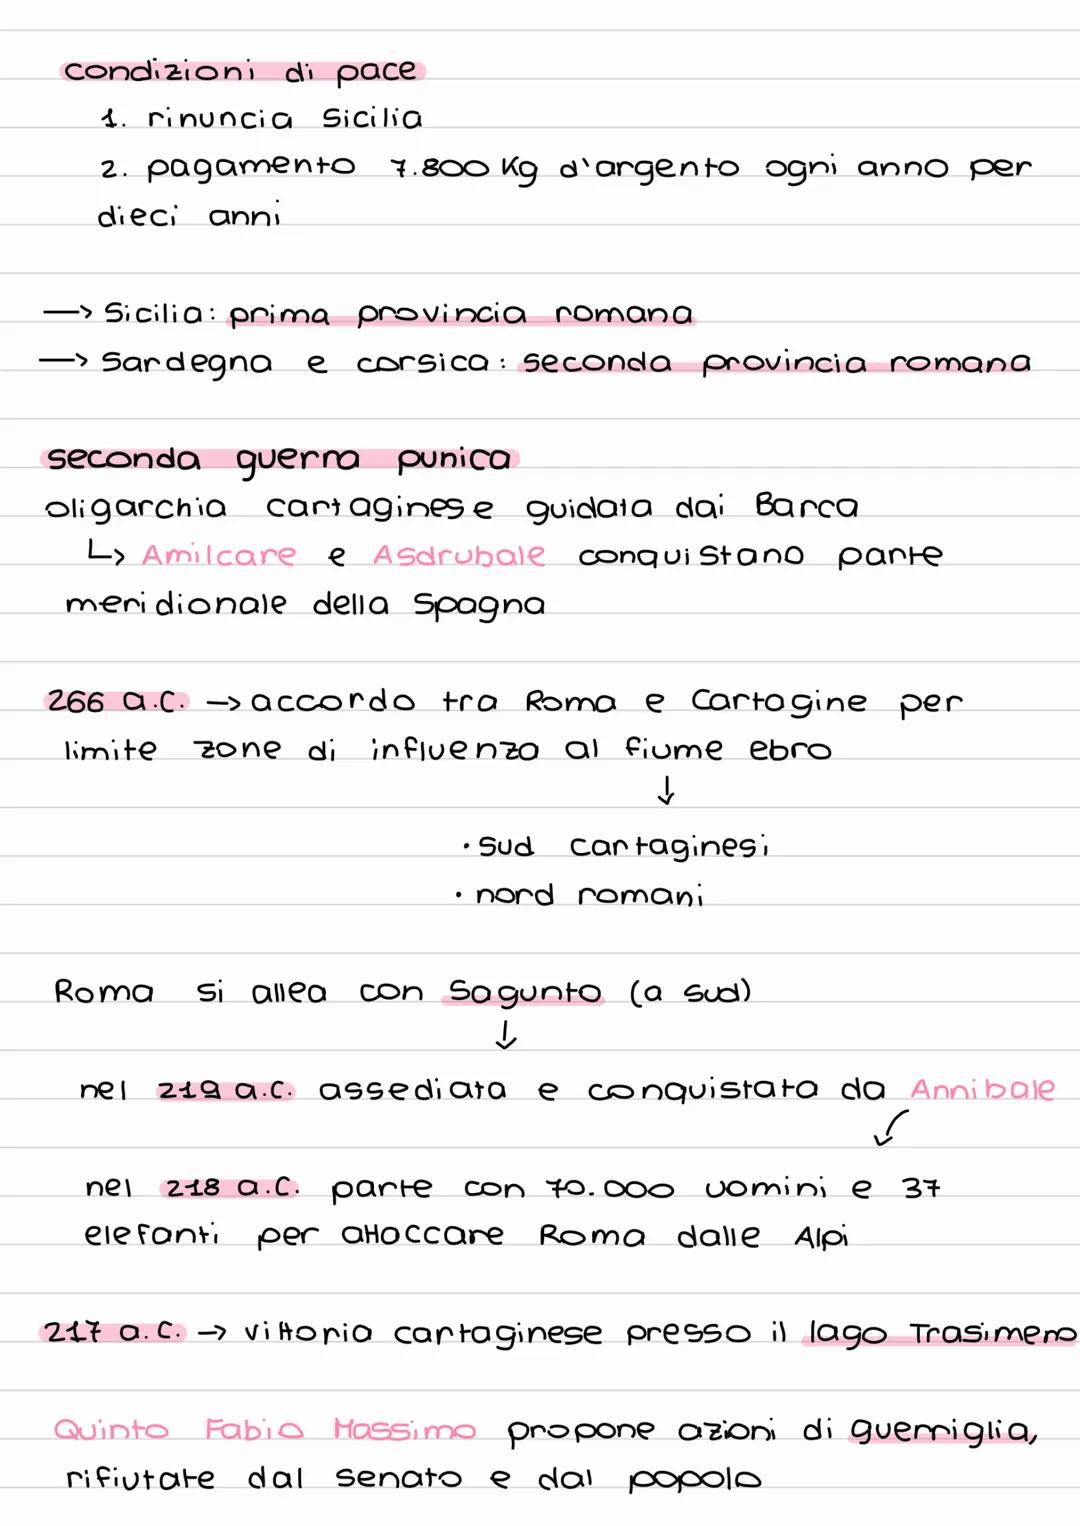 condizioni di pace
1. rinuncia Sicilia
2. pagamento 7.800 Kg d'argento ogni anno per
dieci anni
→ Sicilia: prima provincia romana
→ Sardegna e corsica: seconda provincia romana
seconda guerra punica
oligarchia cartaginese guidata dai Barca
↳ Amilcare e Asdrubale conquistano parte
meridionale della Spagna
266 a.C. → accordo tra Roma e Cartagine per
limite zone di influenza al fiume ebro
↓
· sud cartaginesi
· nord romani
Roma si allea con Sagunto (a sud)
↓
nel 219 a.C. assediata e conquistata da Annibale
↙
nel 218 a.C. parte con 70.000 uomini e 37
elefanti per attaccare Roma dalle Alpi
217 a.C. → vittoria cartaginese presso il lago Trasimeno
Quinto Fabio Massimo propone azioni di guerriglia,
rifiutate dal senato e dal popolo